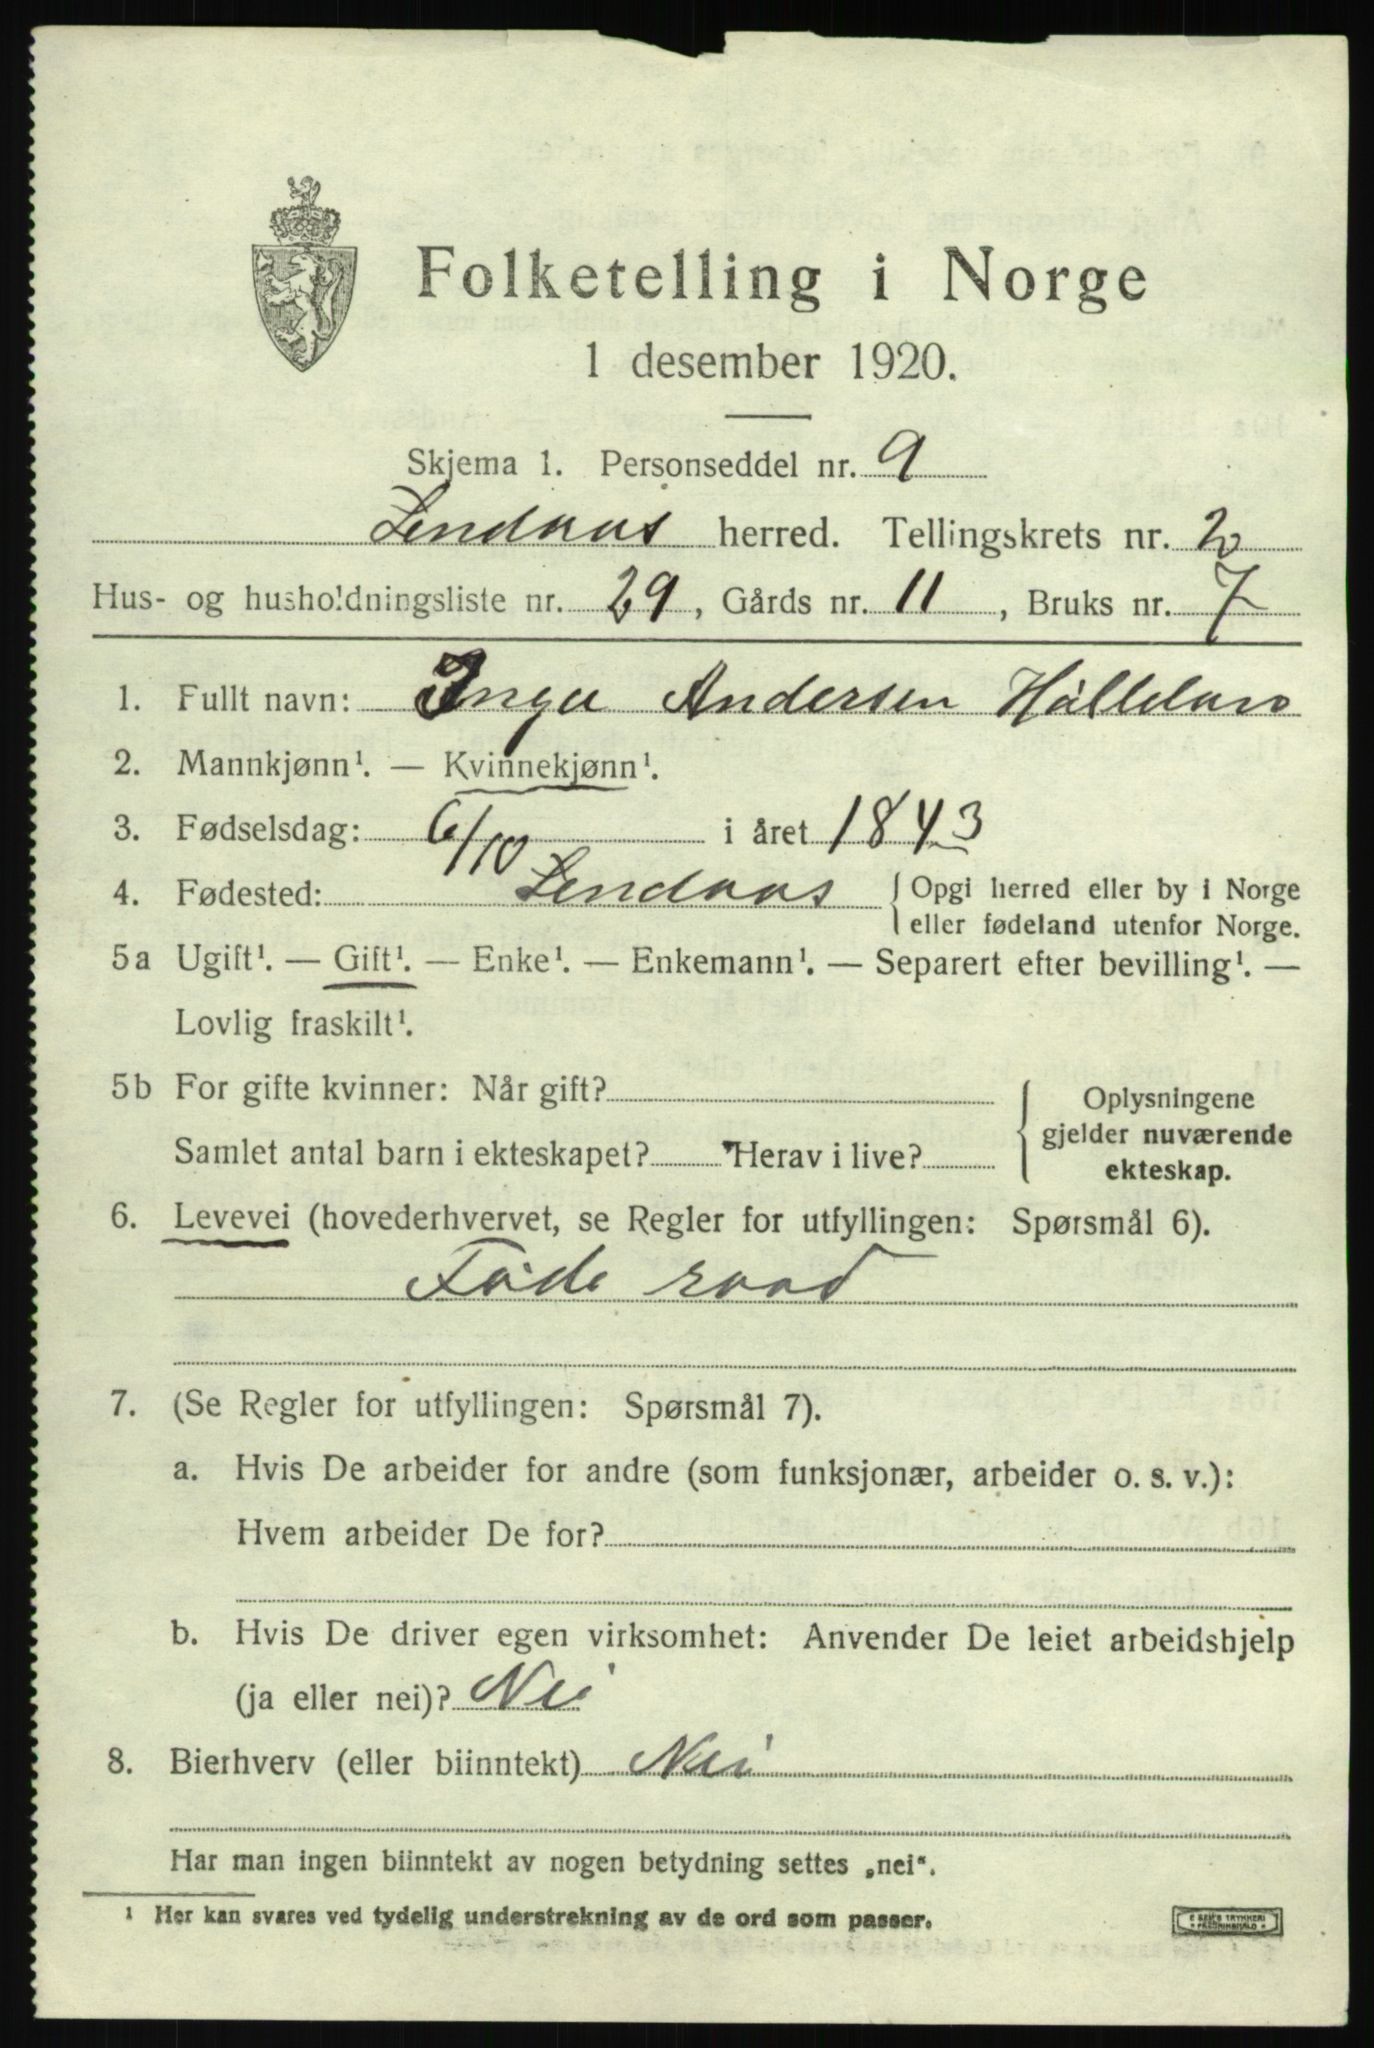 Folketelling i Norge
1 desember 1920.
Skjema 1. Personseddel nr. 9
Lendaas herred. Tellingskrets nr. 2
Hus- og husholdningsliste nr. 29, Gårds nr. 11, Bruks nr. 7
1. Fullt navn: Inga Andersen Hålleland
2. Mannkjønn¹. — Kvinnekjønn¹.
3. Fødselsdag: 6/10 i året 1843
4. Fødested: Lendaas { Opgi herred eller by i Norge
eller fødeland utenfor Norge.
5a Ugift¹. — Gift¹. — Enke¹. — Enkemann¹. — Separert efter bevilling¹. —
Lovlig fraskilt¹.
5b For gifte kvinner: Når gift? { Oplysningene
gjelder nuværende
Samlet antal barn i ekteskapet? Herav i live? ekteskap.
6. Levevei (hovederhvervet, se Regler for utfyllingen: Spørsmål 6).
Føde raad
7. (Se Regler for utfyllingen: Spørsmål 7).
a. Hvis De arbeider for andre (som funksjonær, arbeider o. s. v.):
Hvem arbeider De for?
b. Hvis De driver egen virksomhet: Anvender De leiet arbeidshjelp
(ja eller nei)? Nei
8. Bierhverv (eller biinntekt) Nei
Har man ingen biinntekt av nogen betydning settes „nei“.
¹ Her kan svares ved tydelig understrekning av de ord som passer.
E SEM'S TRYKKERI
FREDRIKSHALD